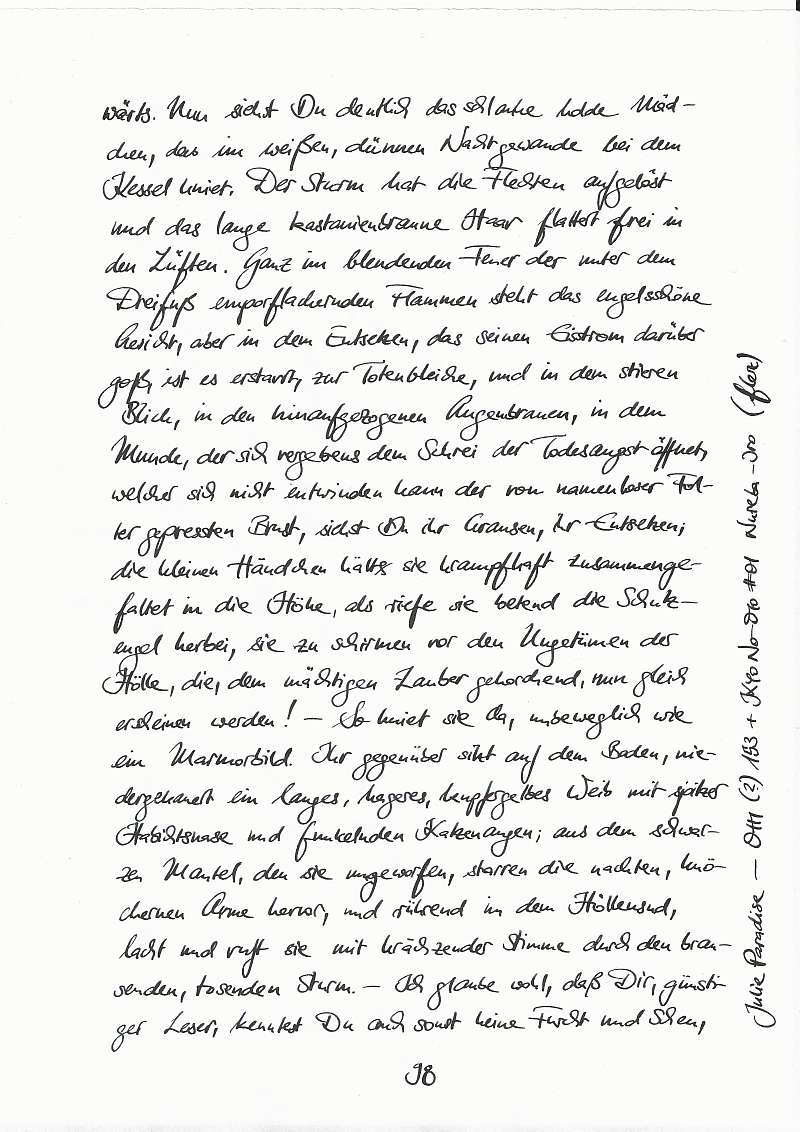 wärts. Nun siehst Du deutlich das schlanke holde Mäd-
chen, das im weißen, dünnen Nachtgewande bei dem
Kessel kniet. Der Sturm hat die Flechten aufgelöst
und das lange kastanienbraune Haar flattert frei in
den Lüften. Ganz im blendenden Feuer der unter dem
Dreifuß emporflackernden Flammen steht das engelsschöne
Gesicht, aber in dem Entsetzen, das seinen Eisstrom darüber
goß, ist es erstarrt, zur Totenbleiche, und in dem stieren
Blick, in den hinaufgezogenen Augenbrauen, in dem
Munde, der sich vergebens dem Schrei der Todesangst öffnet,
welcher sich nicht entwinden kann der von namenloser Fol-
ter gepressten Brust, siehst Du ihr Grausen, ihr Entsetzen;
die kleinen Händchen hält sie krampfhaft zusammenge-
faltet in die Höhe, als riefe sie betend die Schutz-
engel herbei, sie zu schirmen vor den Ungetümen der
Hölle, die, dem mächtigen Zauber gehorchend, nun gleich
erscheinen werden! – So kniet sie da, unbeweglich wie
ein Marmorbild. Ihr gegenüber sitzt auf dem Boden, nie-
dergekauert ein langes, hageres, kupfergelbes Weib mit spitzer
Habichtsnase und funkelnden Katzenaugen; aus dem schwar-
zen Mantel, den sie umgeworfen, starren die nackten, knö-
chernen Arme hervor, und rührend in dem Höllensud,
lacht und ruft sie mit krächzender Stimme durch den brau-
senden, tosenden Sturm. – Ich glaube wohl, daß Dir, günsti-
ger Leser, kenntest Du auch sonst keine Furcht und Scheu,
98
Julie Paradise — Ott (?) 193 + Kyo No-Oto #01 Nureba-Iro (flex)